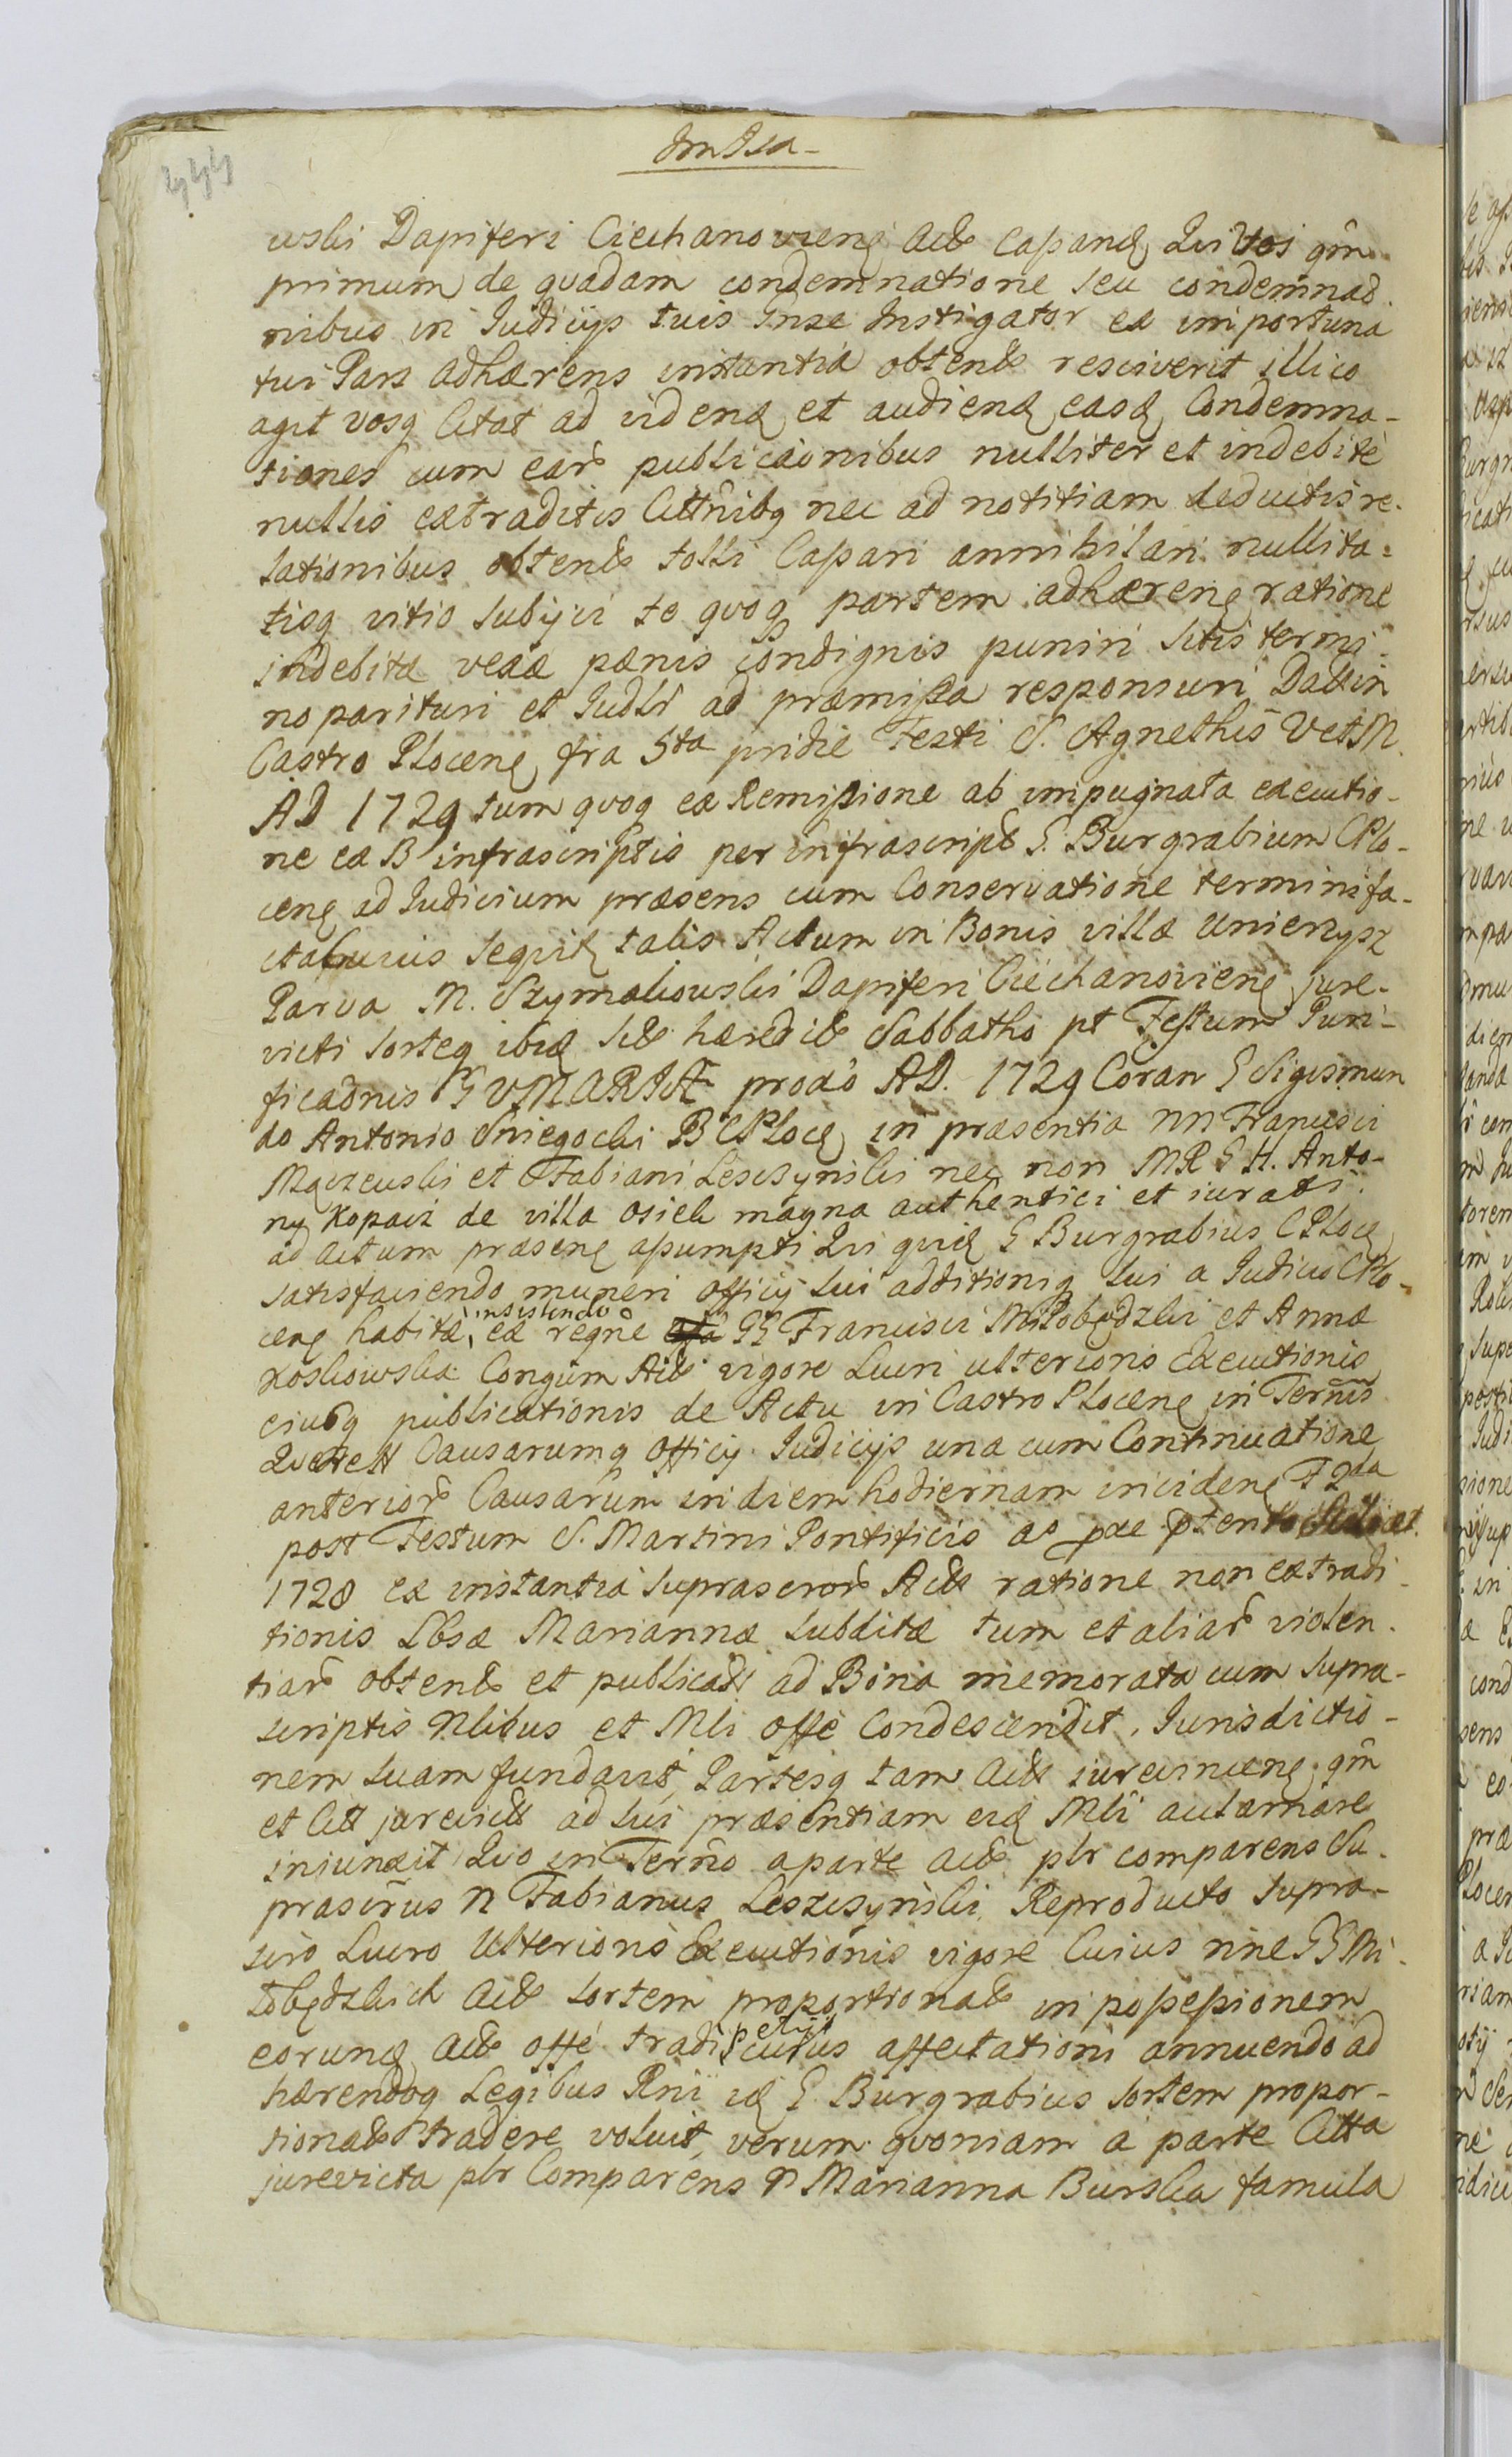 444
wski Dapiferi Ciechanoviens Actos Cassand Qui Vos qm
primum de quadam condemnatione seu condemnao
nibus in Judicijs tuis Inse Instigator ex importuna
tui Pars adhærens instantia obtentis resciverit illico
agit vosq Citat ad videnđ et audienđ easđ Condemna-
tiones cum ear publicaonibus nulliter et indebite
nullis extraditis Citt̃nibq nec ad notitiam deductis re-
lationibus obtentas tolli Cassari annihilari nullita-
tisq vitio subijci te quoq partem adhærenę ratione
indebitæ vexæ pœnis condignis puniri Sitis termi-
no parituri et Judlr ad præmissa responsuri Dattin
Castro Plocenę fra 5ta pridie Festi S. Agnethis VetM
AD 1729 tum quoq ex Remissione ab impugnata executio-
ne ex B infrascriptis per infrascript G. Burgrabium CPlo-
cenę ad Judicium præsens cum Conservatione termini fa-
cta cuius sequitę talis Actum in Bonis villæ Unierzysz
Parva M. Szymakowski Dapiferi Ciechanovienę jure-
victi sorteq ibiđ hæredit Sabbatho pt Festum Puri-
ficaonis G V MARIÆ proxo AD. 1729 Coran G Sigismun
do Antonio Sniegocki B CPlocę in præsentia NN Francisci
et Fabiani Lesczynski nec non MR G H. Anto-
ny Kopacz de villa Osiek magna authentici et iurati
ad actum præsenę assumpti Qui quiđ G Burgrabius CPlocę
satisfaciendo muneri officij sui additioniq sui a Judicio CPlo-
cenę habitæ, insistendo ex reqñe GG Francisci Miłobędzki et Annæ
Koskowska Congũm Act vigore Lucri ulterioris Executionis
eiusq publicationis de Actu in Castro Plocenę in Terñis
Querell Causarumq Officij Judicijs una cum Continuatione
anterior Causarum in diem hodiernam incidenę F 2da
post Festum S. Martini Pontificis
1728 ex instantia suprascror Act ratione non extradi-
tionis Lbsæ Mariannæ Subditæ tum et aliar violen-
tiar obtent et publicat ad Bona memorata cum supra-
scriptis Nlibus et Mli offe Condescendit, Jurisdictio-
nem suam fundavit, Partesq tam Act iurevincenę qm
et Citt jurevict ad sui præsentiam eiđ Mli acclamare
iniunxit Quo in Terño a parte Act plr comparens Su-
prascrus N Fabianus Lesczynski Reproducto supra-
scro Lucro Ulterioris Executionis vigore Cuius nne GG Mi-
łobędzkich Act sortem proportionat in possessionem
eorunđ Act offe tradi petijt cuius affectationi annuendo ad
hærendoq Legibus Rni iđ G. Burgrabius sortem propor-
tionat tradere voluit, verum quoniam a parte Citta
jurevicta plr Comparens N Marianna Burska famula